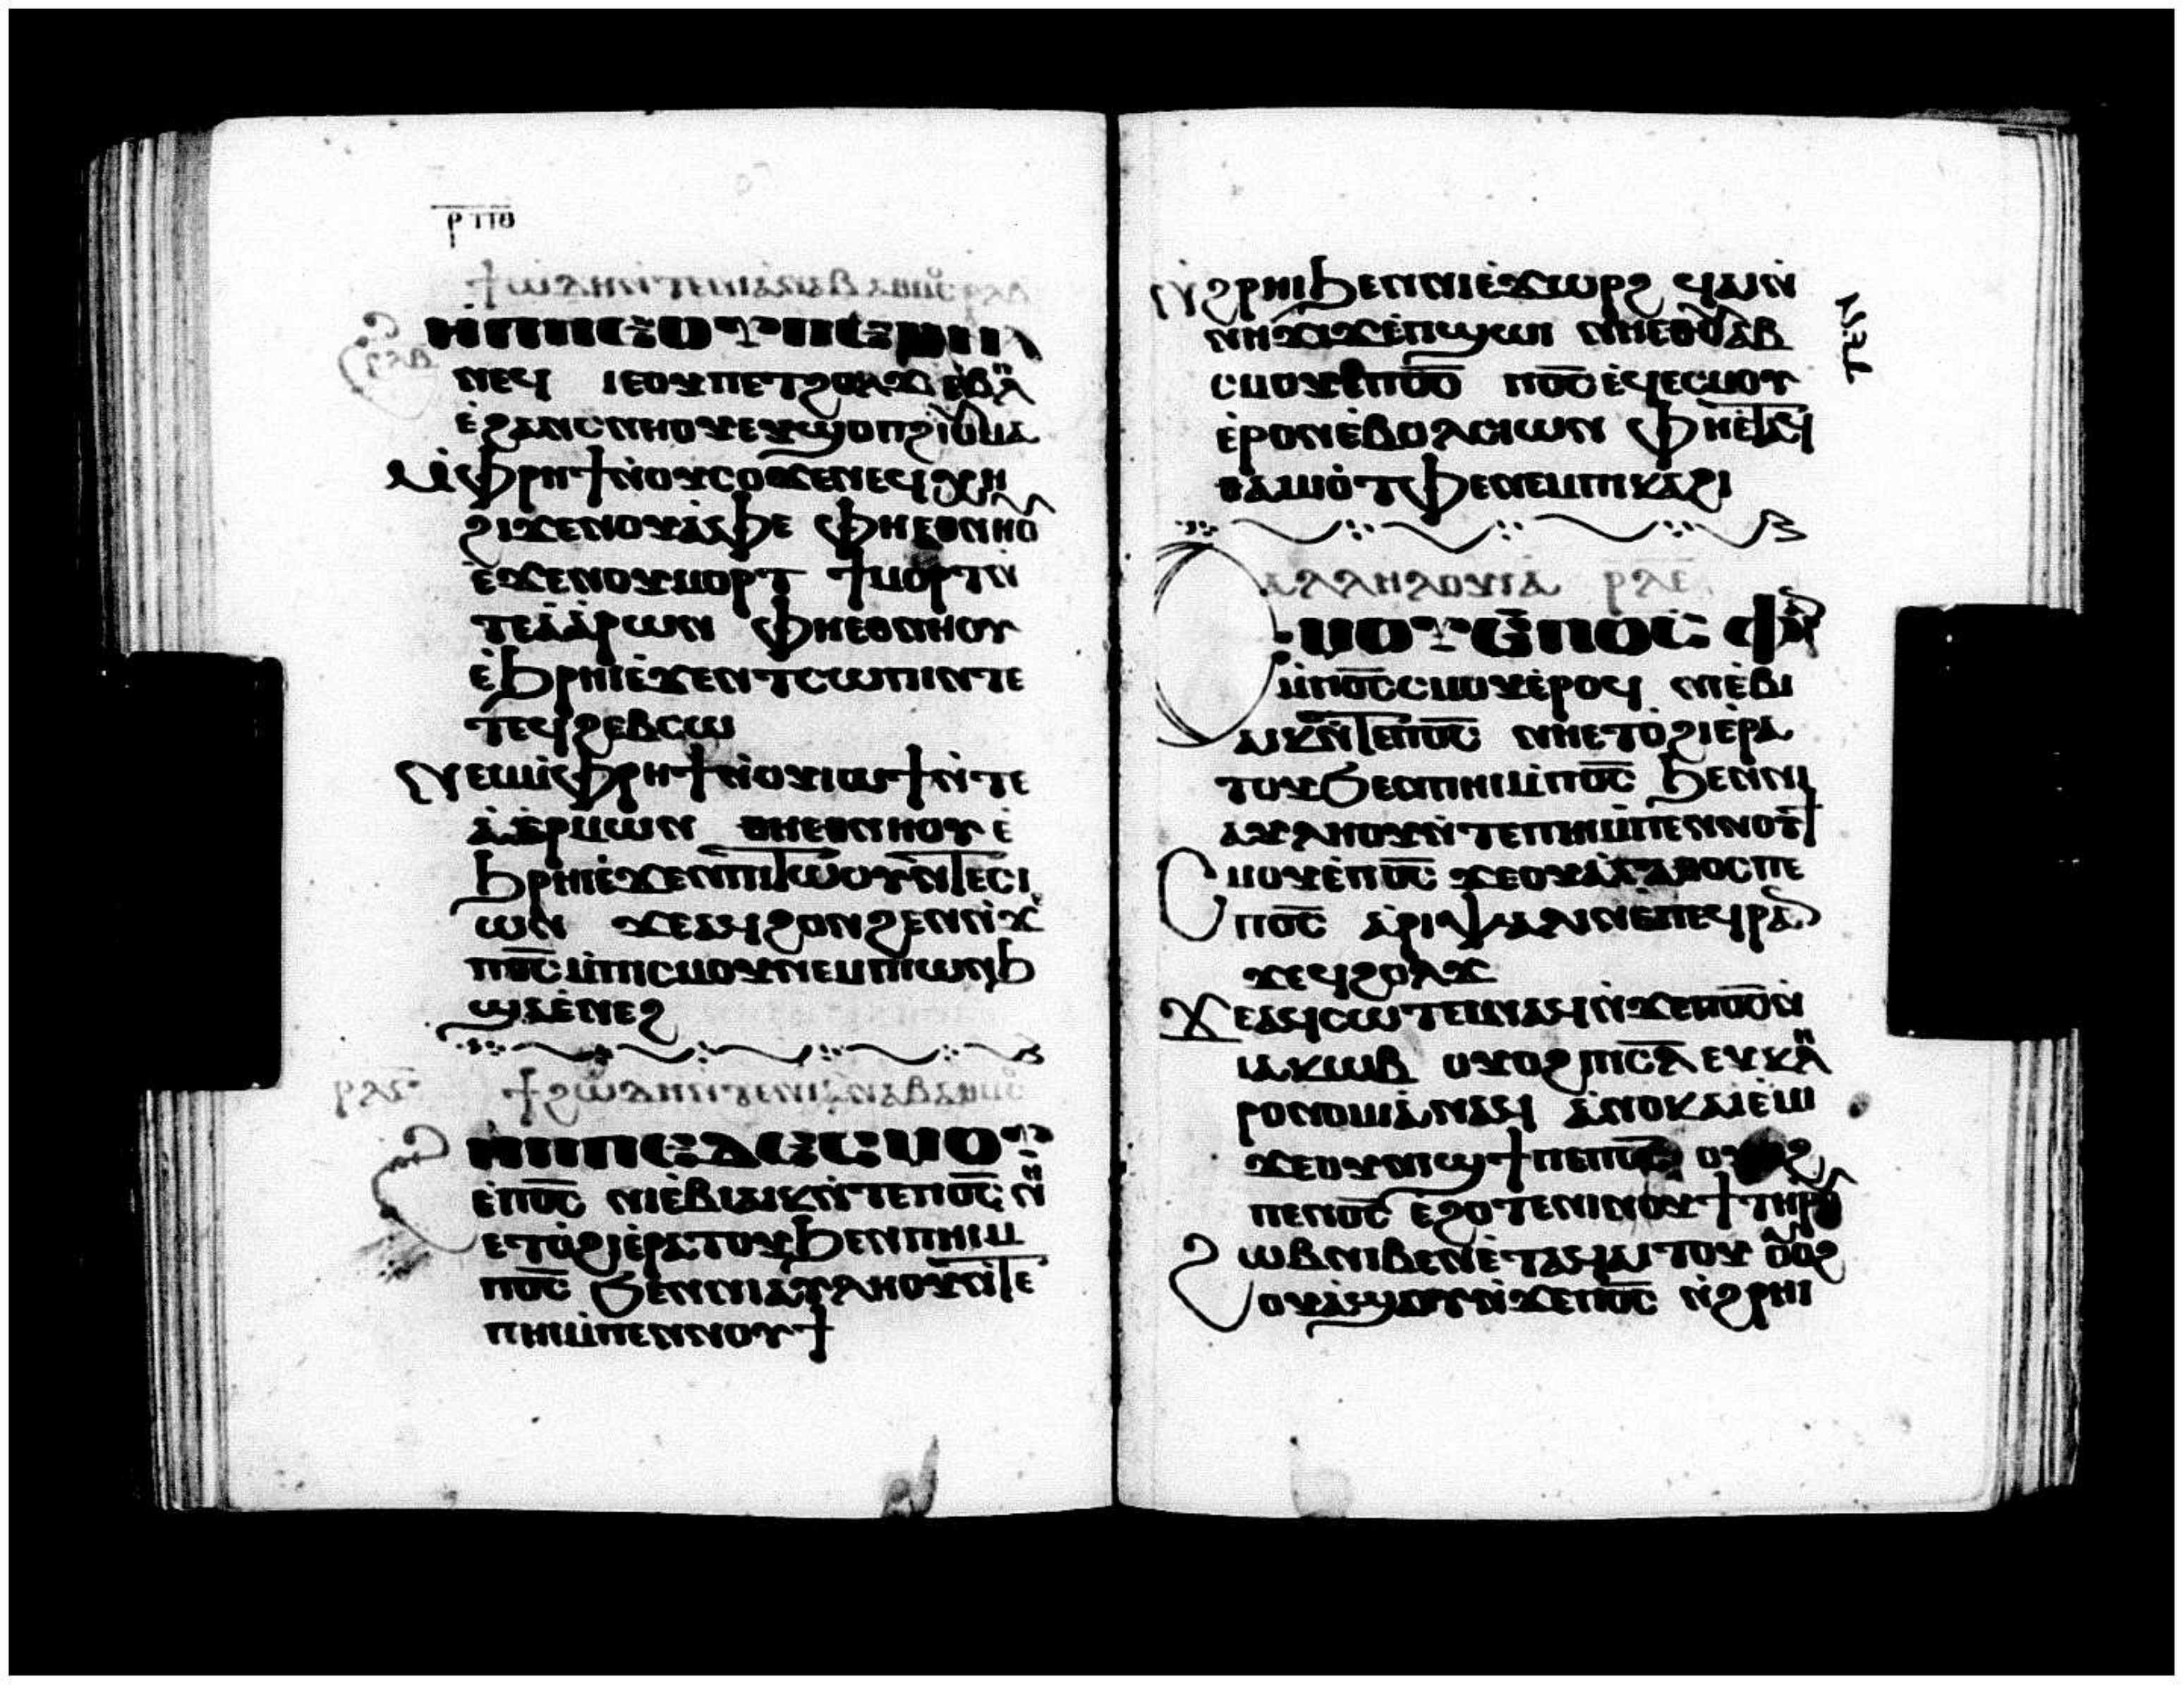 ⲣⲡⲑ
ϯϩⲱⲇⲏⲛ̀ⲧⲉⲛⲓⲁ̀ⲛⲁⲃⲁⲑⲙⲟⲥ ⲣⲗⲃ
ϩⲏⲡⲡⲉⲟⲩⲡⲉⲑⲛⲁ
ⲛⲉϥ ⲓⲉⲟⲩⲡⲉⲧϩⲟⲗϫ ⲉ̀ⲃⲏⲗ
ⲉ̀ϩⲁⲛⲥⲛⲏⲟⲩⲉⲩϣⲟⲡϩⲓⲟⲩⲙⲁ
ⲙ̀ⲫⲣⲏϯⲛ̀ⲟⲩⲥⲟϫⲉⲛⲉϥⲭⲏ
ϩⲓϫⲉⲛⲟⲩⲁ̀ⲫⲉ ⲫⲏⲉⲑⲛⲏⲟⲩ
ⲉ̀ϫⲉⲛⲟⲩⲙⲟⲣⲧ ϯⲙⲟⲣⲧⲛ̀
ⲧⲉⲁ̀ⲁ̀ⲣⲱⲛ ⲫⲏⲉⲑⲛⲏⲟⲩ
ⲉ̀ϧⲣⲏⲓⲉ̀ϫⲉⲛⲧⲥⲱⲡⲓⲛ̀ⲧⲉ
ⲧⲉϥϩⲉⲃⲥⲱ
ⲛⲉⲙⲙ̀ⲫⲣⲏϯⲛ̀ⲟⲩⲓⲱϯⲛ̀ⲧⲉ
ⲁ̀ⲉⲣⲙⲱⲛ ⲑⲏⲉⲑⲛⲏⲟⲩ ⲉ̀
ϧⲣⲏⲓⲉ̀ϫⲉⲛⲡⲓⲧⲱⲟⲩⲛ̀ⲧⲉⲥⲓ
ⲱⲛ ϫⲉⲁϥϩⲟⲛϩⲉⲛⲛ̀ϫⲉ̀
ⲡⲟ̅ⲥ̅ⲙ̀ⲡⲓⲥⲙⲟⲩⲛⲉⲙⲡⲓⲱⲛϧ
ϣⲁⲉ̀ⲛⲉϩ
ⲣⲗⲅ ϯϩⲱⲇⲏⲛ̀ⲧⲉⲛⲓⲁ̀ⲛⲁⲃⲁⲑⲙⲟⲥ
ϩⲏⲡⲡⲉⲇⲉⲥⲙⲟⲩ
ⲉ̀ⲡⲟ̅ⲥ̅ ⲛⲓⲉ̀ⲃⲓⲁⲓⲕⲛ̀ⲧⲉⲡⲟ̅ⲥ̅ ⲛⲏ
ⲉⲧⲟ̀ϩⲓⲉ̀ⲣⲁⲧⲟⲩϧⲉⲛⲡⲏⲓⲙ̀
ⲡⲟ̅ⲥ̅ ϧⲉⲛⲛⲓⲁⲩⲗⲏⲟⲩⲛ̀ⲧⲉ
ⲡⲏⲓⲙ̀ⲡⲉⲛⲛⲟⲩϯ
ⲛ̀ϩⲣⲏⲓϧⲉⲛⲛⲓⲉ̀ϫⲱⲣϩ ϥⲁⲓⲛ̀
ⲛⲏϫⲓϫⲉ̀ⲡϣⲱⲓ ⲛⲏⲉⲑⲟⲩⲁⲃ
ⲥⲙⲟⲩⲉ̀ⲡⲟ̅ⲥ̅ ⲡⲟ̅ⲥ̅ ⲉϥⲉ̀ⲥⲙⲟⲩ
ⲉ̀ⲣⲟⲛⲉ̀ⲃⲟⲗⲥⲓⲱⲛ ⲫⲏⲉ̀ⲧⲁϥ
ⲑⲁⲙⲓⲟ̀ⲧⲫⲉⲛⲉⲙⲡⲕⲁϩⲓ
ⲁⲗⲗⲏⲗⲟⲩⲓⲁ ⲣⲗⲉ
ⲥⲙⲟⲩⲉ̀ⲡⲟ̅ⲥ̅ ⲫⲣⲁⲛ
ⲙ̀ⲡⲟ̅ⲥ̅ⲥⲙⲟⲩⲉ̀ⲣⲟϥ ⲛⲓⲉ̀ⲃⲓ
ⲁⲓⲕⲛ̀ⲧⲉⲡⲟ̅ⲥ̅ ⲛⲏⲉⲧⲟ̀ϩⲓⲉ̀ⲣⲁ
ⲧⲟⲩϧⲉⲛⲡⲏⲓⲙ̀ⲡⲟ̅ⲥ̅ ϧⲉⲛⲛⲓ
ⲁⲩⲗⲏⲟⲩⲛ̀ⲧⲉⲡⲏⲓⲙ̀ⲡⲉⲛⲛⲟⲩϯ
ⲥⲙⲟⲩⲉ̀ⲡⲟ̅ⲥ̅ ϫⲉⲟⲩⲁⲅⲁⲑⲟⲥⲡⲉ
ⲡⲟ̅ⲥ̅ ⲁ̀ⲣⲓⲯⲁⲗⲓⲛⲉ̀ⲡⲉϥⲣⲁⲛ
ϫⲉϥϩⲟⲗϫ
ϫⲉⲁϥⲥⲱⲧⲉⲙⲛⲁϥⲛ̀ϫⲉⲡⲟ̅ⲥ̅ⲛ̀
ⲓⲁⲕⲱⲃ ⲟⲩⲟϩⲡⲓⲥ̅ⲗ̅ ⲉⲩⲕⲗⲏ
ⲣⲟⲛⲟⲙⲓⲁ̀ⲛⲁϥ ⲁ̀ⲛⲟⲕⲁⲓⲉ̀ⲙ
ϫⲉⲟⲩⲛⲓϣϯⲡⲉⲡⲟ̅ⲥ̅ ⲟⲩⲟϩ
ⲡⲉⲛⲟ̅ⲥ̅ ⲉϩⲟⲧⲉⲛⲓⲛⲟⲩϯ ⲧⲏⲣⲟⲩ
ϩⲱⲃⲛⲓⲃⲉⲛⲉ̀ⲧⲁϥⲁⲓⲧⲟⲩ ⲟⲩⲟϩ
ⲟⲩⲁϣⲟⲩⲛ̀ϫⲉⲡⲟ̅ⲥ̅ ⲛ̀ϩⲣⲏⲓ